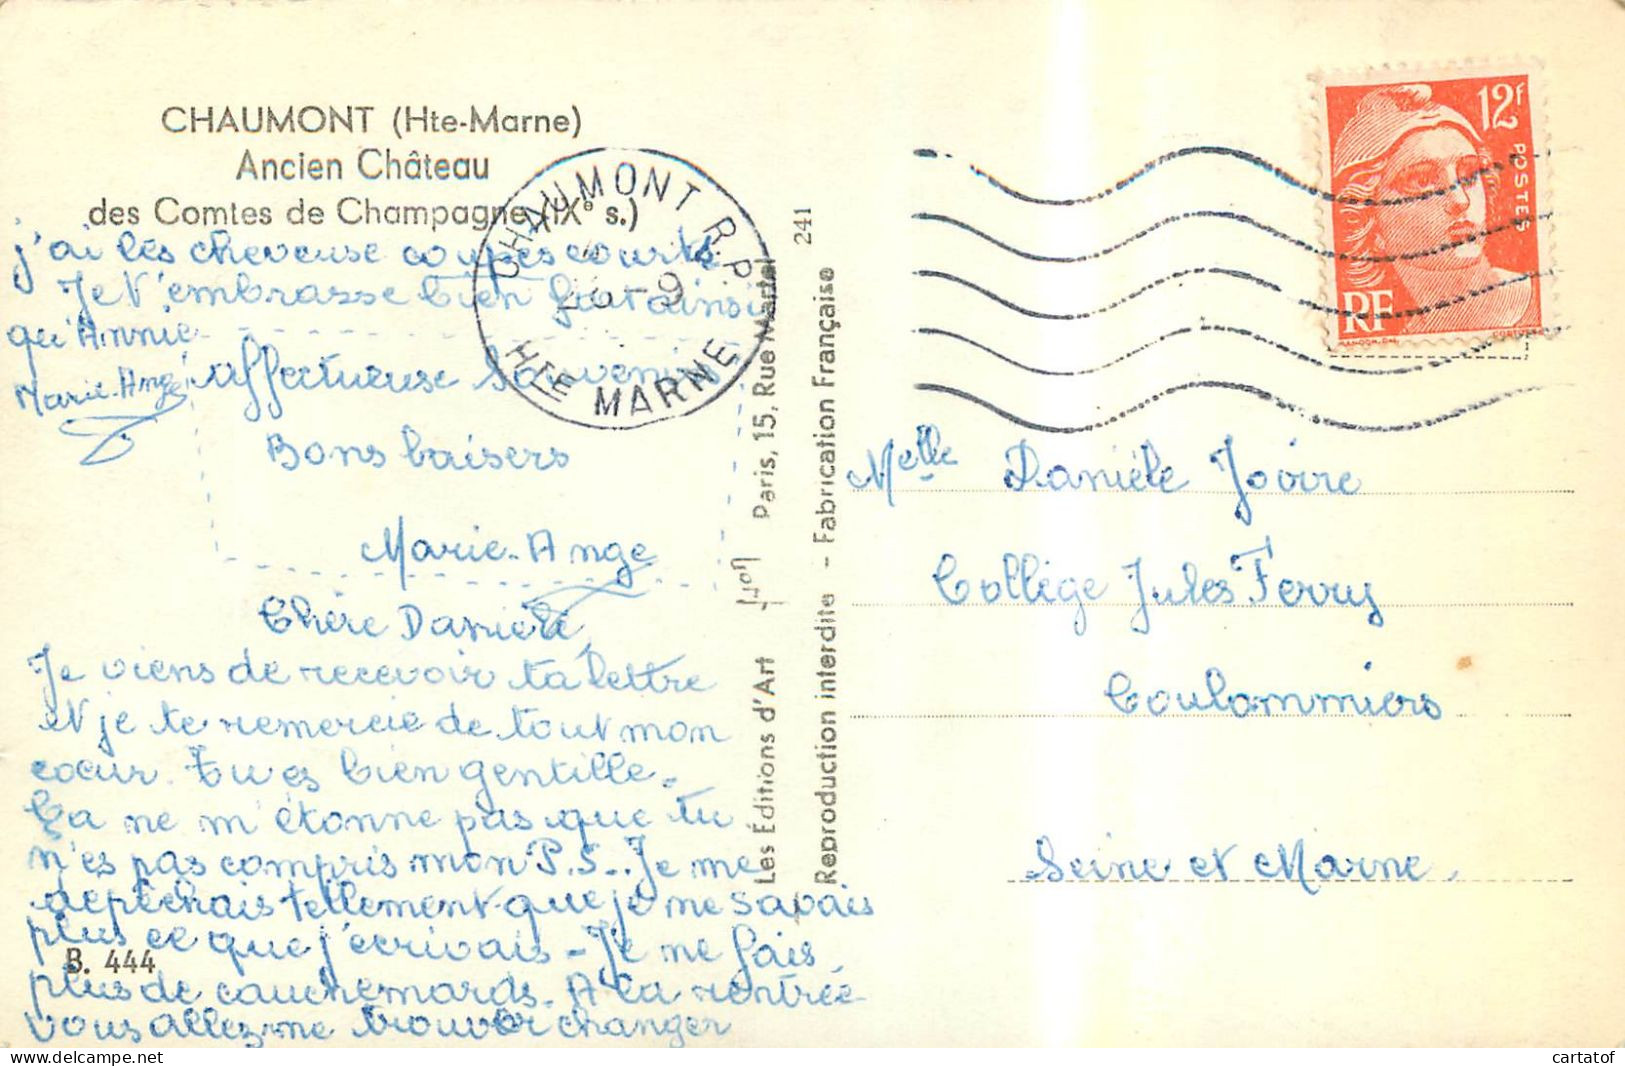 CHAUMONT (Hte-Marne)
Ancien Château
des Comtes de Champagne (IXe s.)
j'ai les cheveuse coupés courts
Je t'embrasse bien fort ainsi
qu'Annie
Marie-Ange
affectueuse souvenirs
Bons baisers
Marie-Ange
Chère Danièle,
Je viens de recevoir ta lettre
et je te remercie de tout mon
cœur. Tu es bien gentille.
Ça ne m'étonne pas que tu
n'es pas compris mon P.S.. Je me
depêchais tellement que je ne savais
plus ce que j'écrivais - Je ne fais
plus de cauchemards. A la rentrée
vous allez me trouver changer
B. 444
CHAUMONT R.P
-9
HTE MARNE
Les Éditions d'Art Yvon Paris, 15, Rue Martel
Reproduction interdite - Fabrication Française
241
12f
POSTES
RF
GANDON.DEL
CORTOT
Melle Danièle Jovire
Collège Jules Ferry
Coulommiers
Seine et Marne.
cartatof